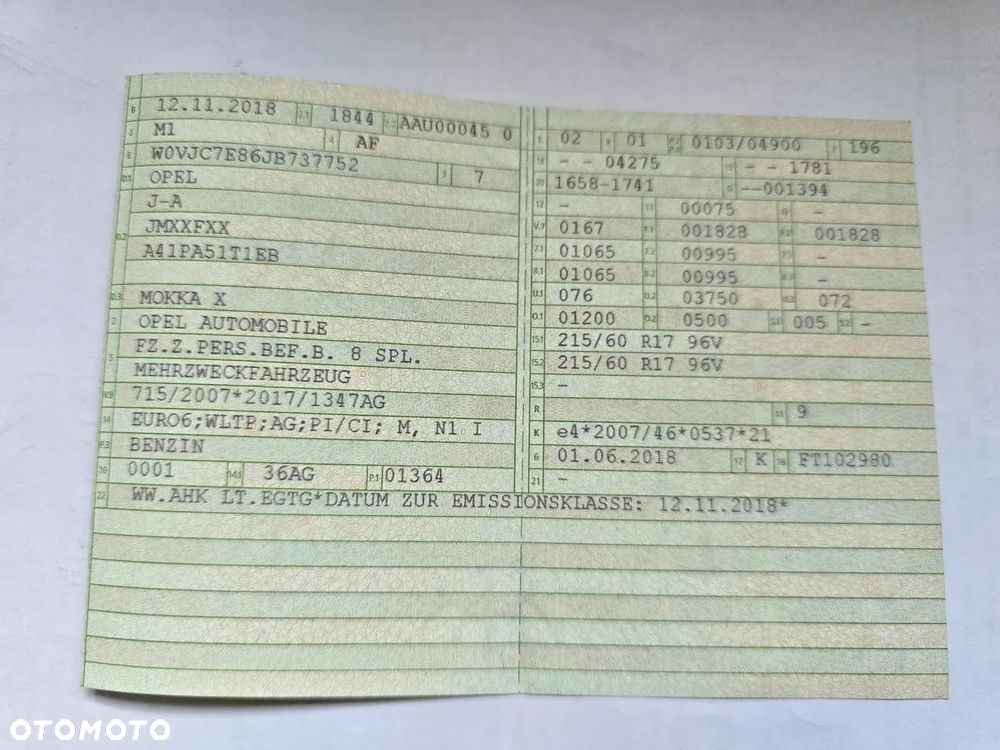 B 12.11.2018 2.1 1844 2.2 AAU00045 0
J M1 4 AF
E W0VJC7E86JB737752 3 7
D.1 OPEL
J-A
D.2 JMXXFXX
A41PA51T1EB
D.3 MOKKA X
2 OPEL AUTOMOBILE
5 FZ.Z.PERS.BEF.B. 8 SPL.
MEHRZWECKFAHRZEUG
V.9 715/2007*2017/1347AG
14 EURO6;WLTP;AG;PI/CI; M, N1 I
P.3 BENZIN
10 0001 14.1 36AG P.1 01364
22 WW.AHK LT.EGTG*DATUM ZUR EMISSIONSKLASSE: 12.11.2018*
L 02 9 01 P.2 P.4 0103/04900 T 196
18 - - 04275 19 - - 1781
20 1658-1741 G --001394
12 - 13 00075 Q -
V.7 0167 F.1 001828 F.2 001828
7.1 01065 7.2 00995 7.3 -
8.1 01065 8.2 00995 8.3 -
U.1 076 U.2 03750 U.3 072
O.1 01200 O.2 0500 S.1 005 S.2 -
15.1 215/60 R17 96V
15.2 215/60 R17 96V
15.3 -
R 11 9
K e4*2007/46*0537*21
6 01.06.2018 17 K 16 FT102980
21 -
OTOMOTO